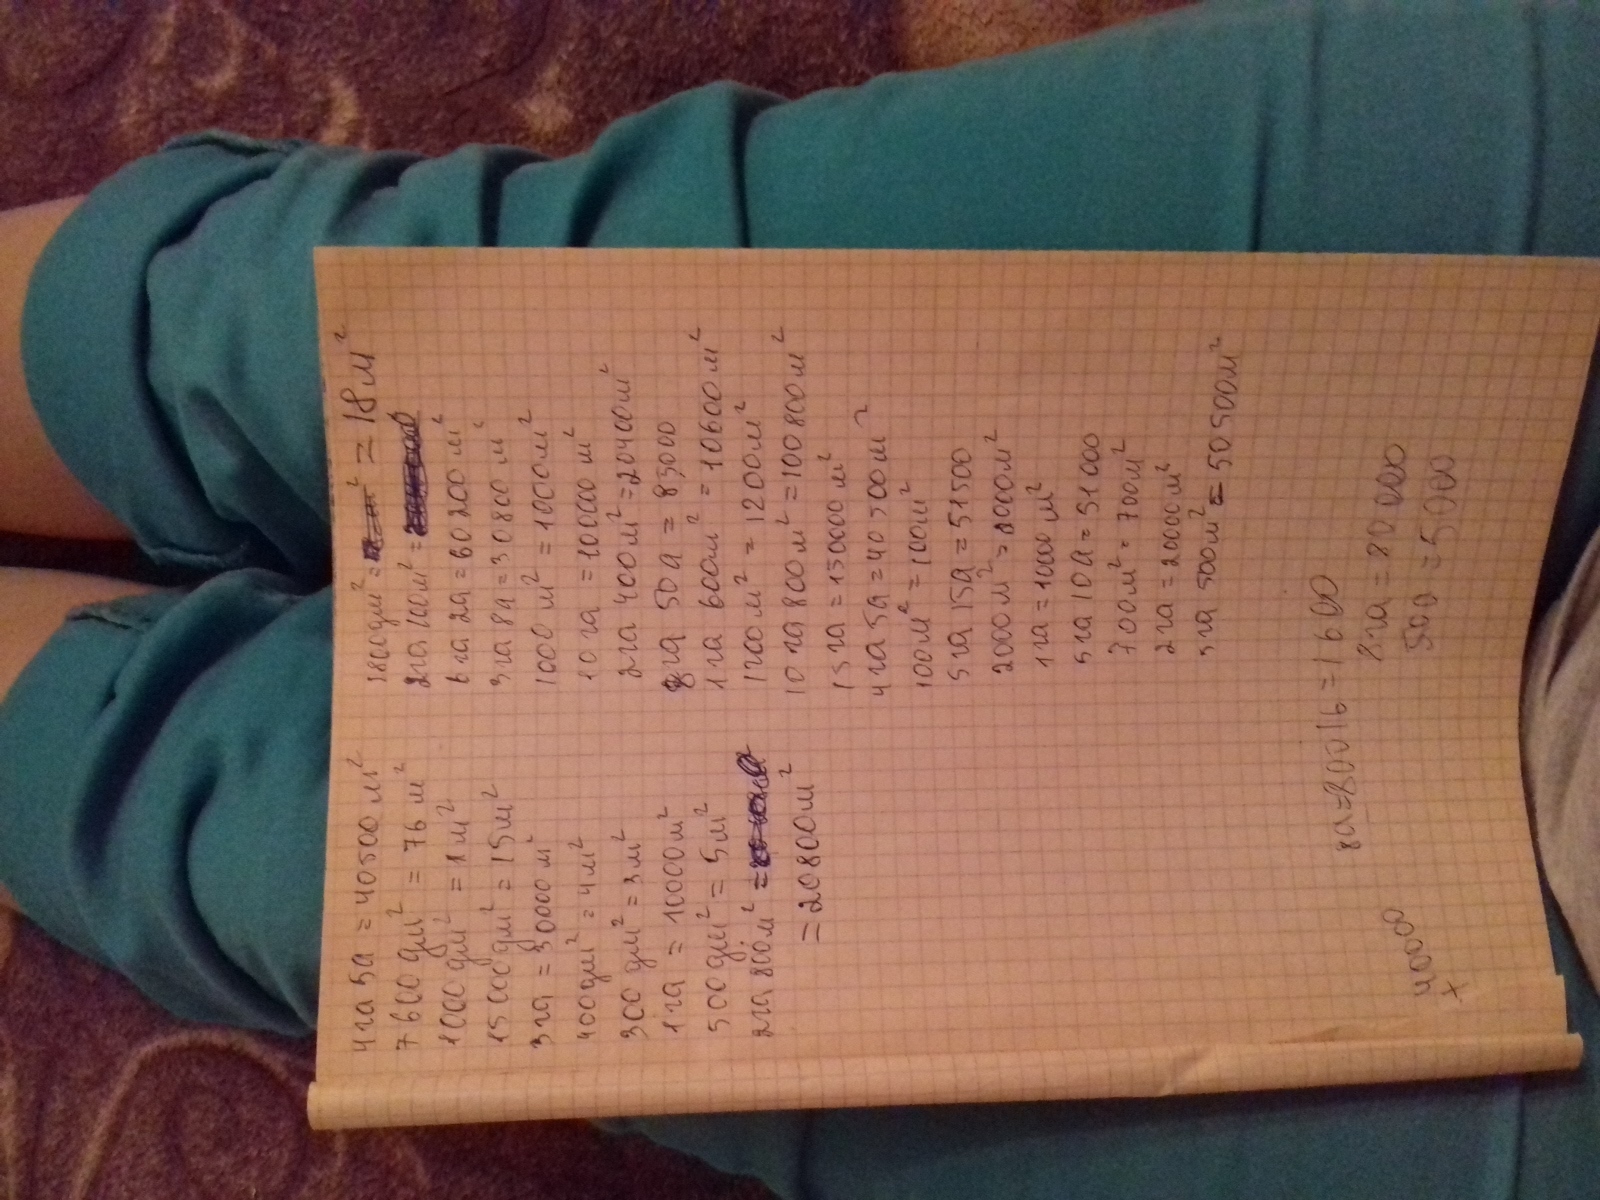 4га 5а = 40500м²
7600дм² = 76м²
1000дм² = 1м²
15000дм² = 15м²
3га = 30000м²
400дм² = 4м²
300дм² = 3м²
1га = 10000м²
500дм² = 5м²
2га 800м² =
= 20800м²
1800дм² = = 18м²
2га 100м² =
6га 2а = 60200м²
3га 8а = 30800м²
1000м² = 1000м²
10га = 100000м²
2га 400м² = 20400м²
8га 50а = 85000
1га 600м² = 10600м²
1200м² = 1200м²
10га 800м² = 100800м²
15га = 150000м²
4га 5а = 40500м²
100м² = 100м²
5га 15а = 51500
2000м² = 2000м²
1га = 10000м²
5га 10а = 51000
700м² = 700м²
2га = 20000м²
5га 500м² = 50500м²
8а = 800 16 = 1600
8га = 80 000
50а = 5000
40000
+